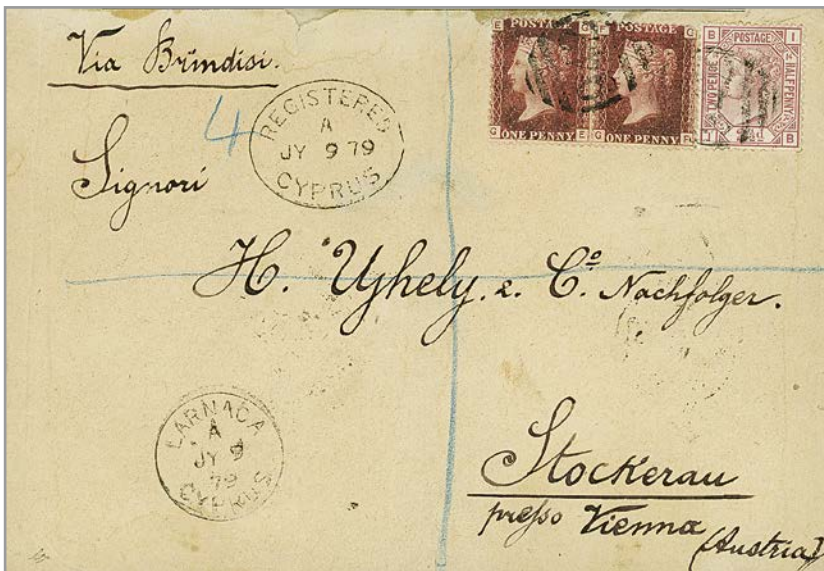 Via Brindisi.
4
REGISTERED
A
JY 9 79
CYPRUS
E POSTAGE G
G ONE PENNY E
F POSTAGE G
G ONE PENNY F
B POSTAGE I
TWO PENCE
HALF PENNY
I B
Signori
H. Ujhely. & Cº. Nachfolger.
LARNACA
A
JY 9
79
CYPRUS
Stockerau
presso Vienna
(Austria)